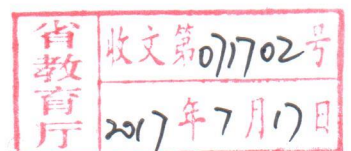 省教育厅
收文第071702号
2017年7月17日